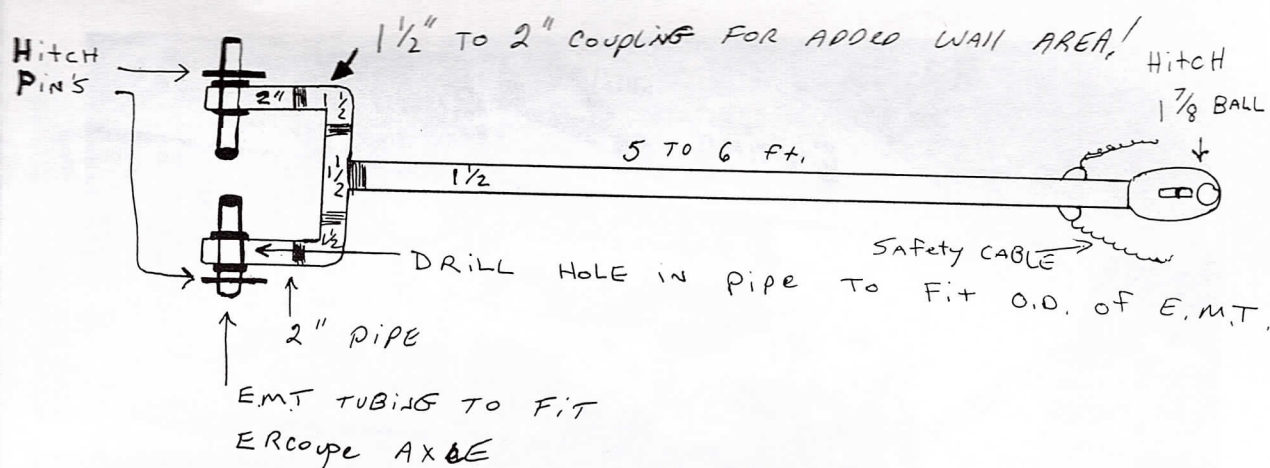 1 1/2" TO 2" COUPLING FOR ADDED WALL AREA!
HiTCH
PiN'S
HiTCH
1 7/8 BALL
2"
1 1/2
1 1/2
1 1/2
1 1/2
5 TO 6 ft.
SAfety CABLE
DRiLL HOLE iN PiPe To Fit O.D. of E.M.T.
2" PiPE
E.M.T TUBiNG TO FiT
ERCoupe AXLE